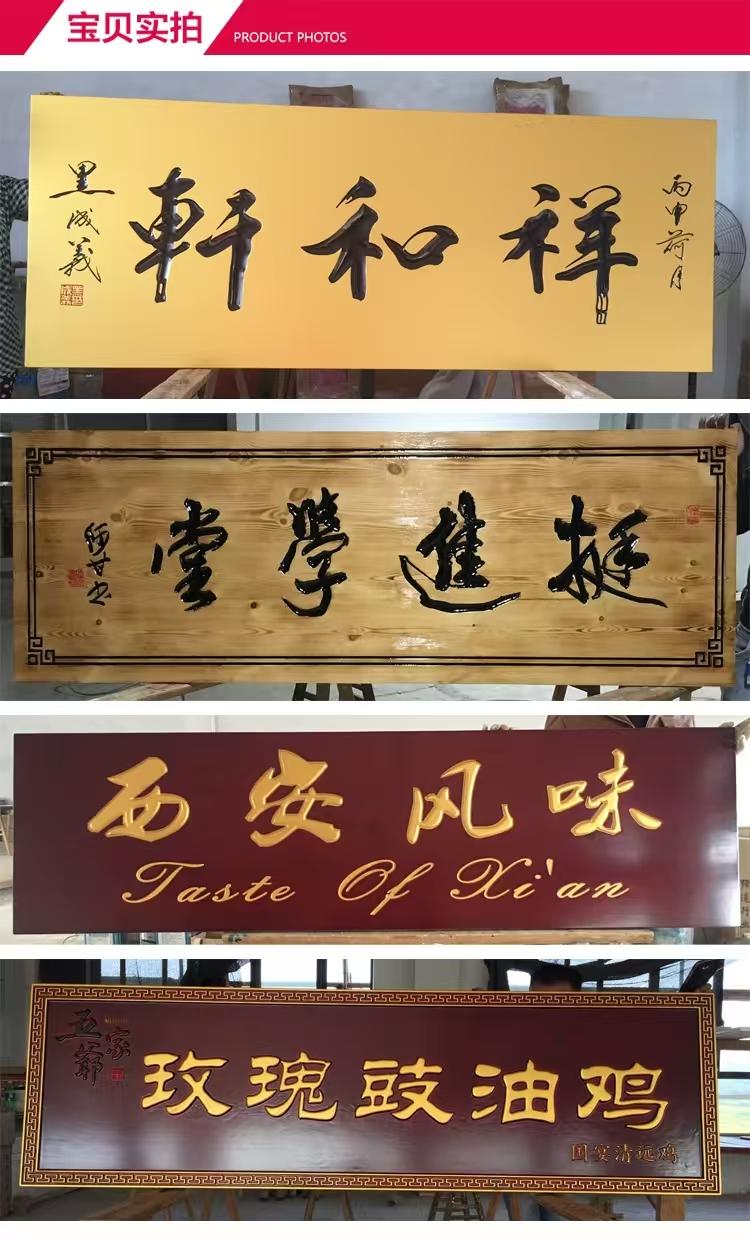 宝贝实拍
PRODUCT PHOTOS
丙申荷月
祥和軒
成義
挺進學堂
西安风味
Taste Of Xi'an
五爺
家
玫瑰豉油鸡
国宴清远鸡